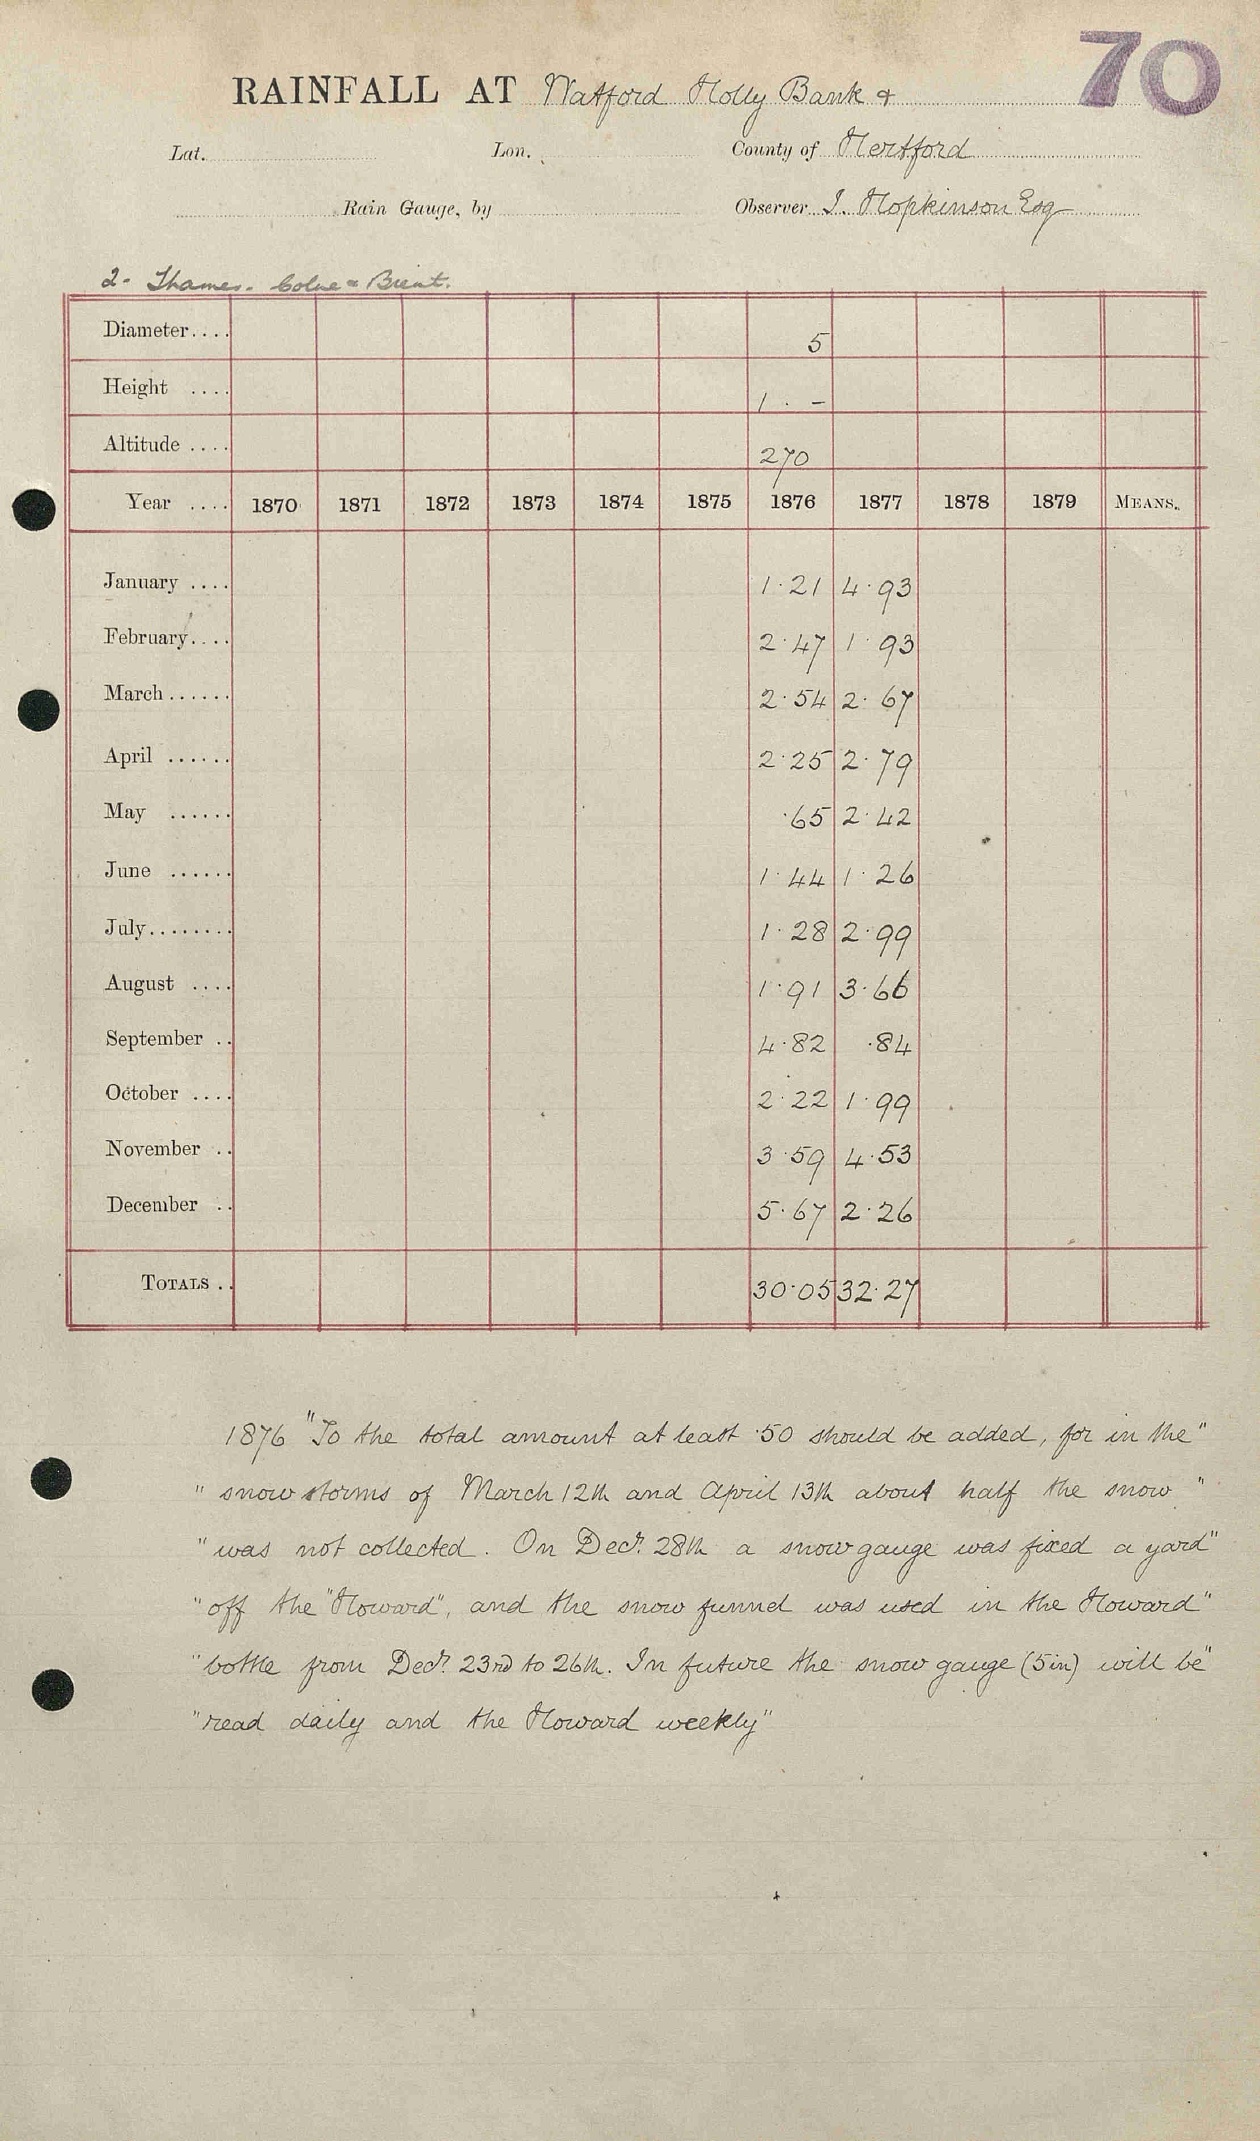 70
RAINFALL AT Watford Holly Bank &
Lat. Lon. County of Hertford
Rain Gauge, by Observer J. Hopkinson Esq
2. Thames. Colne & Brent.
Diameter.... 5
Height .... 1 . -
Altitude .... 270
Year .... 1870 1871 1872 1873 1874 1875 1876 1877 1878 1879 MEANS.
January .... 1.21 4.93
February.... 2.47 1.93
March...... 2.54 2.67
April ...... 2.25 2.79
May ...... .65 2.42
June ...... 1.44 1.26
July........ 1.28 2.99
August .... 1.91 3.66
September .. 4.82 .84
October .... 2.22 1.99
November .. 3.59 4.53
December .. 5.67 2.26
TOTALS .. 30.05 32.27
1876 "To the total amount at least .50 should be added, for in the"
"snow storms of March 12th and April 13th about half the snow"
"was not collected. On Decr. 28th a snow gauge was fixed a yard"
"off the "Howard", and the snow funnel was used in the Howard"
"bottle from Decr. 23rd to 26th. In future the snow gauge (5in) will be"
"read daily and the Howard weekly"